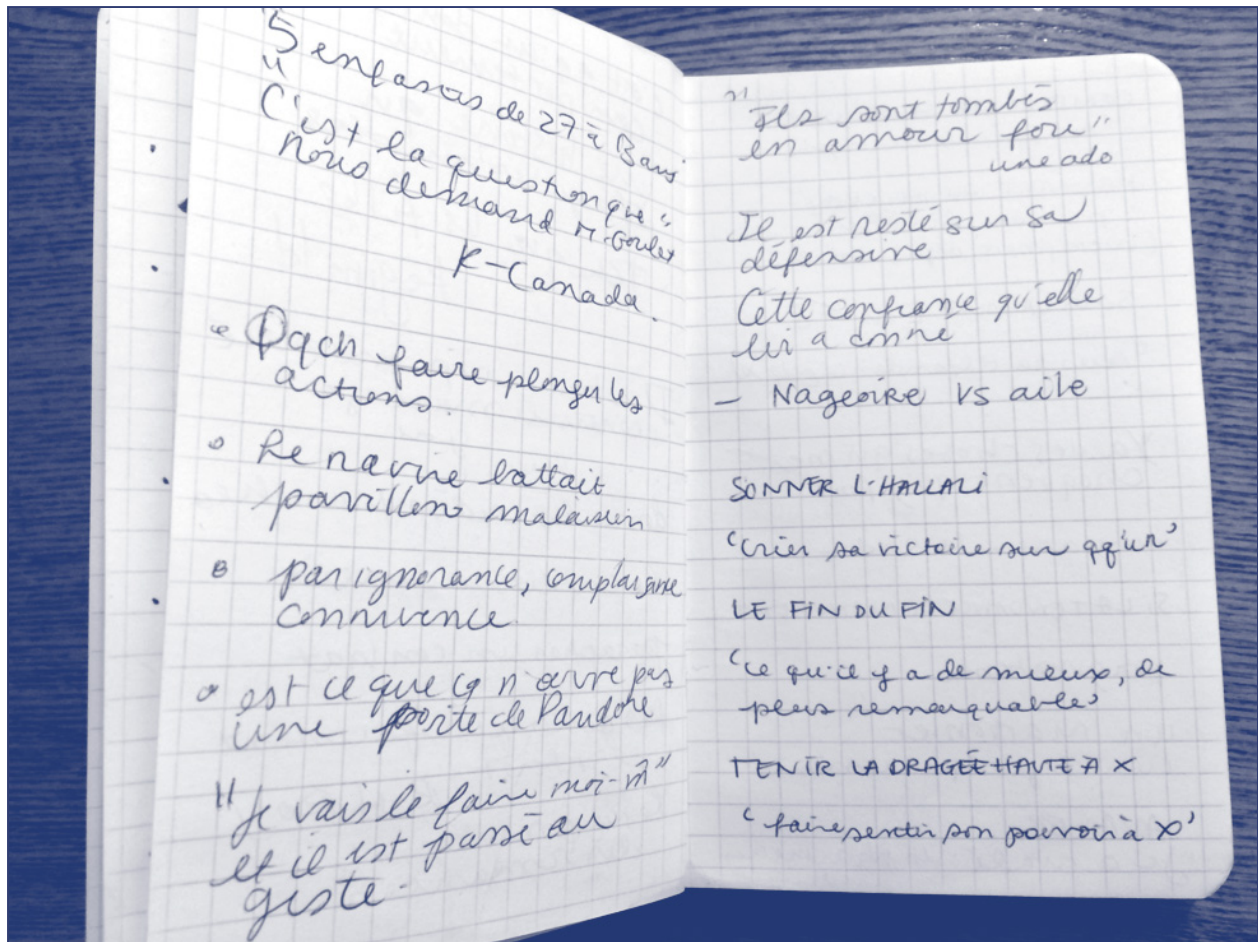 5 enfants de 27 à Bari
"C'est la question que"
nous demand M. Goulet
K-Canada.
Qqch faire plonger les
actions.
Le navire battait
pavillon malaisien
par ignorance, complaisance
connivence
est ce que ça n'ouvre pas
une porte de Pandore
"Je vais le faire moi-m̂"
et il est passé au
geste.
"Ils sont tombés
en amour fou"
une ado
Il est resté sur sa
défensive
Cette confiance qu'elle
lui a donné
- Nageoire vs aile
SONNER L'HALLALI
'crier sa victoire sur qq'un'
LE FIN DU FIN
'ce qu'il y a de mieux, de
plus remarquable'
TENIR LA DRAGÉE HAUTE À X
'faire sentir son pouvoir à X'